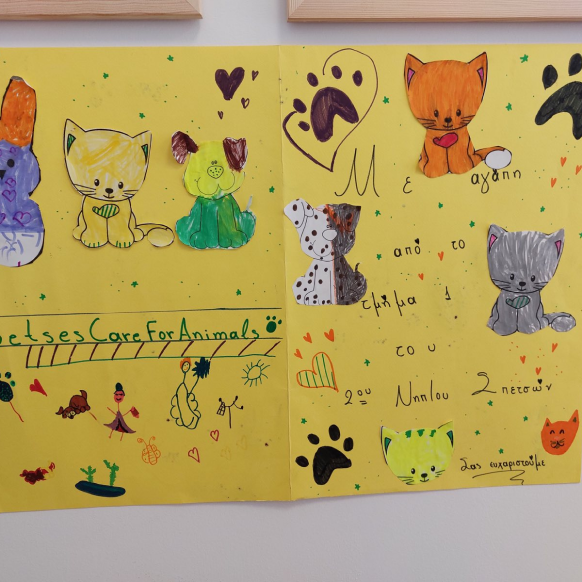 SpetsesCareForAnimals
Με αγάπη
από το
τμήμα 1
του
2ου Νηπ/ου Σπετσών
Σας ευχαριστούμε